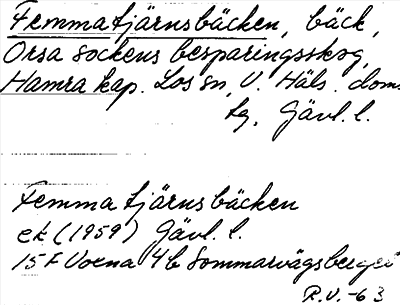 Femmatjärnsbäcken, bäck,
Orsa sockens besparingsskog,
Hamra kap. Los sn, V. Häls. doms.
tg, Gävl. l.
Femmatjärnsbäcken
ek (1959) Gävl. l.
15 F Voxna 4b Sommarvägsberget
R.V. -63